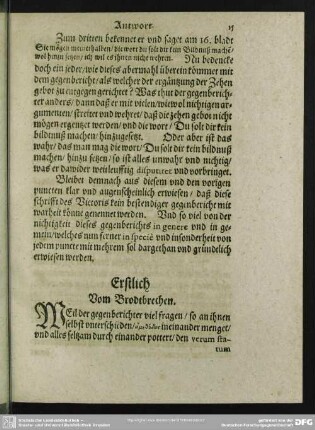 Antwort 15
Zum dritten bekennet er vnd saget am 16. bladt
Sie mögen meinethalben / die wort du solt dir kein Bildnuß machē /
wol hinzu setzen / ich wil es jhnen nicht wehren. Nu bedencke
doch ein jeder / wie dieses abermahl überein kommet mit
dem gegenbericht / als welcher der ergäntzung der Zehen
gebot zu entgegen gerichtet? Was thut der gegenberich-
ter anders / dann daß er mit vielen / wiewol nichtigen ar-
gumenten / streitet vnd wehret / daß die zehen gebot nicht
mögen ergentzet werden / vnd die wort / Du solt dir kein
bildtnuß machen / hinzugesetzt. Oder aber ist das
wahr / das man mag die wort / Du solt dir kein bildnuß
machen / hinzu setzen / so ist alles vnwahr vnd nichtig /
was er dawider weitleufftig disputiret vnd vorbringet.
Bleibet demnach aus diesem vnd den vorigen
puncten klar vnd augenscheinlich erwiesen / daß diese
schrifft des Victoris kein bestendiger gegenbericht mit
warheit könne genennet werden. Vnd so viel von der
nichtigkeit dieses gegenberichts in genere vnd in ge-
mein / welches nun ferner in specie vnd insonderheit von
jedem puncte mit mehrem sol dargethan vnd gründelich
erwiesen werden.
Erstlich
Vom Brodtbrechen.
WEil der gegenberichter viel fragen / so an jhnen
selbst vnterschieden / in einander menget /
vnd alles seltzam durch einander pottert / den verum sta-
tum